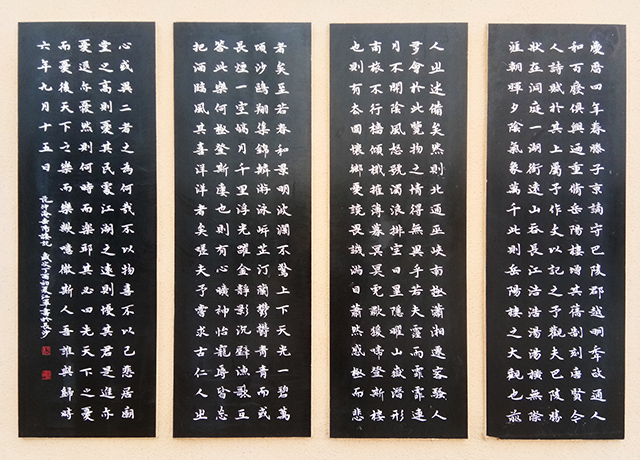 慶曆四年春滕子京謫守巴陵郡越明年政通人
和百廢俱興迺重脩岳陽樓增其舊制刻唐賢今
人詩賦於其上屬予作文以記之予觀夫巴陵勝
狀在洞庭一湖銜遠山吞長江浩浩湯湯橫無際
涯朝暉夕陰氣象萬千此則岳陽樓之大觀也前
人之述備矣然則北通巫峽南極瀟湘遷客騷人
多會於此覽物之情得無異乎若夫霪雨霏霏連
月不開陰風怒號濁浪排空日星隱曜山嶽潛形
商旅不行檣傾楫摧薄暮冥冥虎嘯猿啼登斯樓
也則有去國懷鄉憂讒畏譏滿目蕭然感極而悲
者矣至若春和景明波瀾不驚上下天光一碧萬
頃沙鷗翔集錦鱗游泳岸芷汀蘭鬱鬱青青而或
長煙一空皓月千里浮光躍金靜影沉璧漁歌互
答此樂何極登斯樓也則有心曠神怡寵辱皆忘
把酒臨風其喜洋洋者矣嗟夫予嘗求古仁人之
心或異二者之為何哉不以物喜不以己悲居廟
堂之高則憂其民處江湖之遠則憂其君是進亦
憂退亦憂然則何時而樂耶其必曰先天下之憂
而憂後天下之樂而樂歟噫微斯人吾誰與歸時
六年九月十五日
范仲淹岳陽樓記 歲次丁酉初夏江萍書於長沙